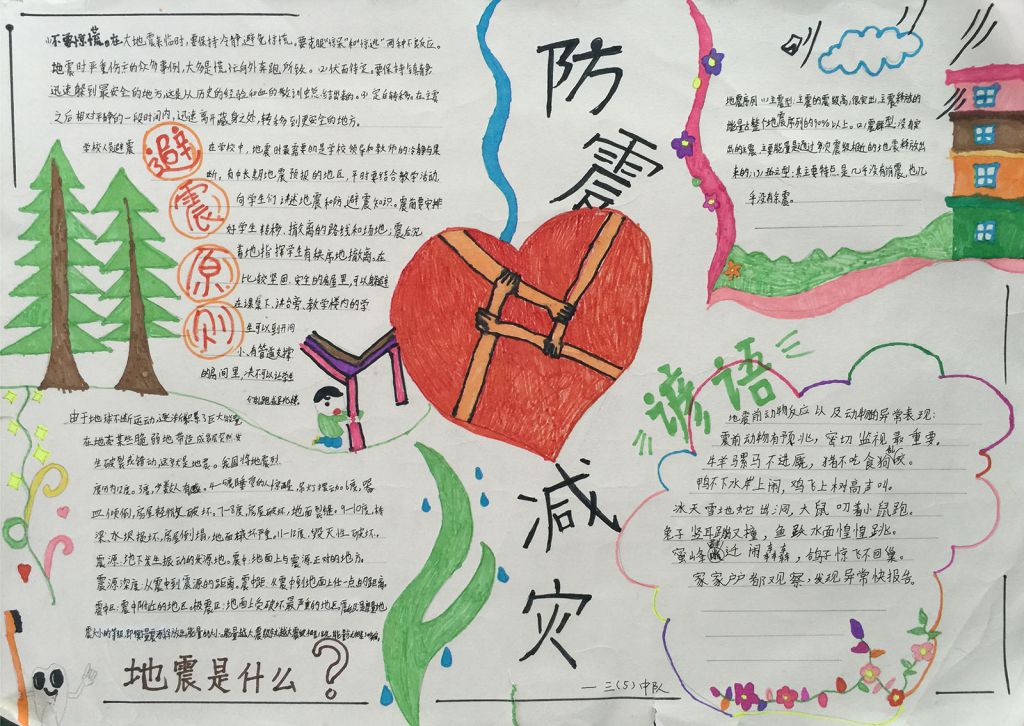 不要惊慌。在大地震来临时,要保持冷静,避免惊慌。要克服"惊呆"和"惊逃"两种不良反应。
地震时严重伤亡的众多事例,大多是慌忙向外奔跑所致。(2)伏而待定。要保持与自救
迅速躲到最安全的地方,这是从历史的经验和血的教训中总结出来的。③定后转移。在主震
之后相对平静的一段时间内,迅速离开藏身之处,转移到更安全的地方。
避震原则
学校人员避震
在学校中,地震时最需要的是学校领导和教师的冷静与果
断,有中长期地震预报的地区,平时要结合教学活动
向学生们讲述地震和防、避震知识。震前要安排
好学生转移、撤离的路线和场地,震后沉
着地指挥学生有秩序地撤离。在
比较坚固、安全的房屋里,可以躲避
在课桌下、讲台旁、教学楼内的学
生可以到开间
小、有管道支撑
的房间里,决不可让学生
由于地球不断运动,逐渐积累了巨大能量
在地壳某些脆弱地带造成岩层突然发
生破裂或错动,这就是地震。我国将地震烈
度分为12度。3度,少数人有感。4-5度睡觉的人惊醒,吊灯摆动。6度,器
皿倾倒,房屋轻微破坏。7-8度,房屋破坏,地面裂缝。9-10度,桥
梁、水坝损坏,房屋倒塌,地面破坏严重。11-12度,毁灭性破坏。
震源:地下发生振动的来源地。震中:地面上与震源正对的地方。
震源深度:从震中到震源的距离。震中距:从震中到地面上任一点的距离。
震中区:震中附近的地区。极震区:地面上受破坏最严重的地区。
地震是什么?
防震减灾
——三(5)中队
地震序列(1)主震型:主震的震级高,很突出,主震释放的
能量占整个地震序列的90%以上。(2)震群型:没有突
出的主震,主要能量是通过多次震级相近的地震释放出
来的。(3)孤立型:其主要特点是几乎没有前震,也几
乎没有余震。
谚语
地震前动物反应以及动物的异常表现:
震前动物有预兆,密切监视最重要。
牛羊骡马不进厩,猪不吃食狗乱咬。
鸭不下水岸上闹,鸡飞上树高声叫。
冰天雪地蛇出洞,大鼠叼着小鼠跑。
兔子竖耳蹦又撞,鱼跃水面惶惶跳。
蜜蜂群迁闹轰轰,鸽子惊飞不回巢。
家家户户都观察,发现异常快报告。